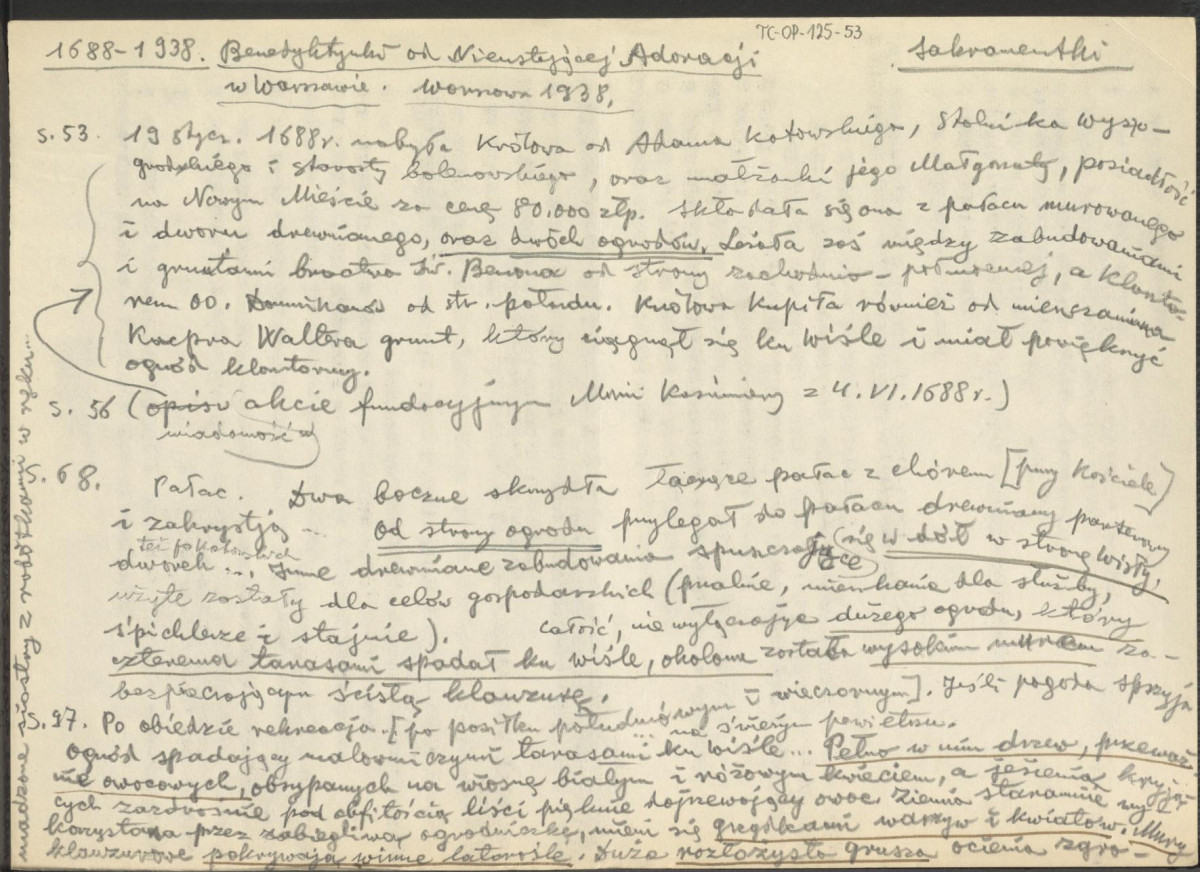 TC-OP-125-53
1688-1938. Benedyktynki od Nieustającej Adoracji Sakramentki
w Warszawie. Warszawa 1938.
s. 53. 19 stycz. 1688r. nabyła Królowa od Adama Kotowskiego, stolnika wyszo-
grodzkiego i starosty bolemowskiego, oraz małżonki jego Małgorzaty, posiadłość
na Nowym Mieście za cenę 80.000 złp. Składała się ona z pałacu murowanego
i dworu drewnianego, oraz dwóch ogrodów. Leżała zaś między zabudowaniami
i gruntami bractwa Św. Benona od strony zachodnio-północnej, a klaszto-
rem OO. Dominikanów od str. połudn. Królowa kupiła również od mieszczanina
Kacpra Waltera grunt, który ciągnął się ku Wiśle i miał powiększyć
ogród klasztorny.
s. 56 (opisu akcie fundacyjnym Marii Kazimiery z 4.VI.1688r.)
wiadomość w
s. 68. Pałac. Dwa boczne skrzydła łączące pałac z chórem [przy kościele]
i zakrystją ... od strony ogrodu przylegał do pałacu drewniany parterowy
też po Kotowskich
dworek ..., Inne drewniane zabudowania spuszczające się w dół w stronę Wisły,
użyte zostały dla celów gospodarskich (pralnie, mieszkanie dla służby,
śpichlerze i stajnie). Całość, nie wyłączając dużego ogrodu, który
czterema tarasami spadał ku Wiśle, okolona została wysokim murem za-
bezpieczającym ścisłą klauzurę.
s. 97. Po obiedzie rekreacja. [po posiłku południowym i wieczornym]. Jeśli pogoda sprzyja
... na świeżym powietrzu.
ogród spadający malowniczymi tarasami ku Wiśle... Pełno w nim drzew, przeważ-
nie owocowych, obsypanych na wiosnę białym i różowym kwieciem, a jesienią kryją-
cych zazdrośnie pod obfitością liści pięknie dojrzewający owoc. Ziemia starannie wy-
korzystana przez zabiegliwą ogrodniczkę, mieni się grządkami warzyw i kwiatów. Mury
klauzurowe pokrywają winne latorośle. Duża rozłożysta grusza ocienia zgro-
madzone siostry z robótkami w ręku...